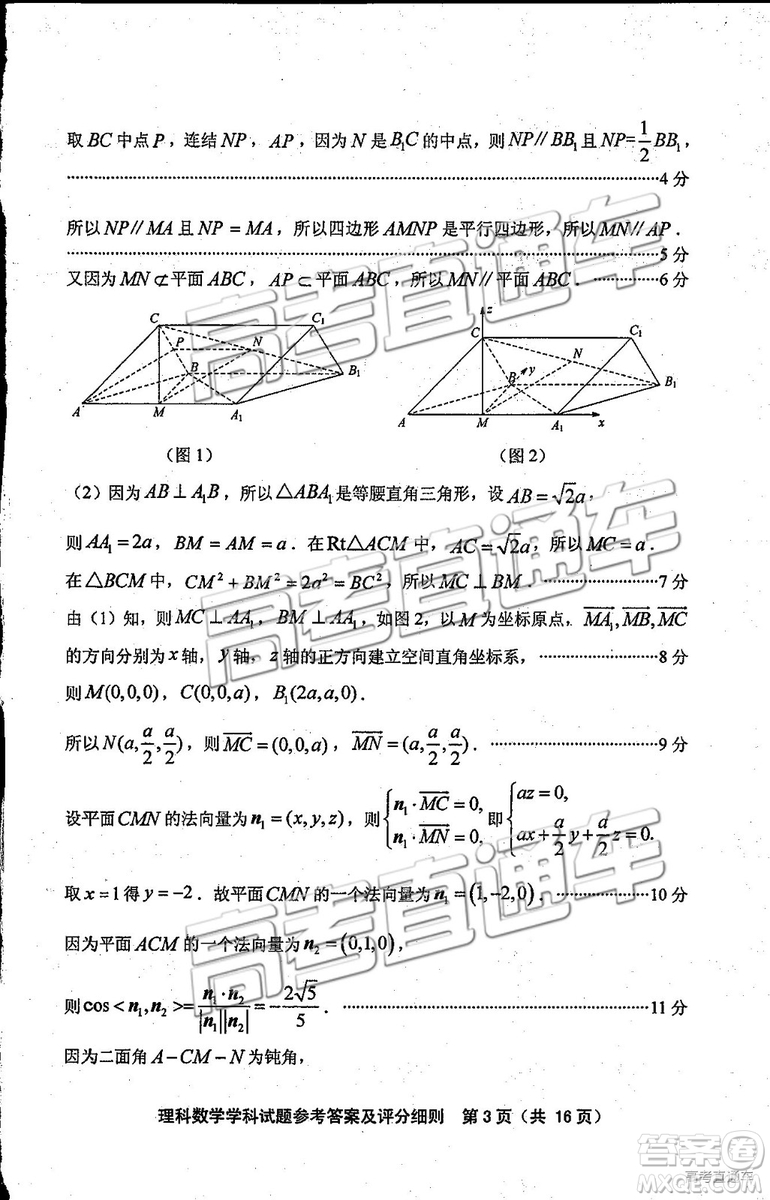 取 BC 中点 P，连结 NP，AP，因为 N 是 B₁C 的中点，则 NP∥BB₁ 且 NP=1/2 BB₁，
……4 分
所以 NP∥MA 且 NP = MA，所以四边形 AMNP 是平行四边形，所以 MN∥AP．
……5 分
又因为 MN⊄平面 ABC，AP⊂平面 ABC，所以 MN∥平面 ABC．……6 分
C C₁ P N B B₁ A M A₁
z C C₁ N B y B₁ A M A₁ x
（图 1） （图 2）
（2）因为 AB⊥A₁B，所以△ABA₁ 是等腰直角三角形，设 AB=√2a，
则 AA₁=2a，BM=AM=a．在Rt△ACM 中，AC=√2a，所以 MC=a．
在△BCM 中，CM²+BM²=2a²=BC²，所以 MC⊥BM．……7 分
由（1）知，则 MC⊥AA₁，BM⊥AA₁，如图 2，以 M 为坐标原点，MA₁,MB,MC
的方向分别为 x 轴，y 轴，z 轴的正方向建立空间直角坐标系，……8 分
则 M(0,0,0)，C(0,0,a)，B₁(2a,a,0)．
所以 N(a,a/2,a/2)，则 MC=(0,0,a)，MN=(a,a/2,a/2)．……9 分
设平面 CMN 的法向量为 n₁=(x,y,z)，则{n₁·MC=0, n₁·MN=0, 即{az=0, ax+a/2 y+a/2 z=0.
取 x=1 得 y=-2．故平面 CMN 的一个法向量为 n₁=(1,-2,0)．……10 分
因为平面 ACM 的一个法向量为 n₂=(0,1,0)，
则 cos<n₁,n₂>=n₁·n₂/|n₁||n₂|=-2√5/5．……11 分
因为二面角 A-CM-N 为钝角，
理科数学学科试题参考答案及评分细则 第 3 页（共 16 页）
高考直通车
高考直通车
高考直通车
答案圈
MXQE.COM
高考直通车